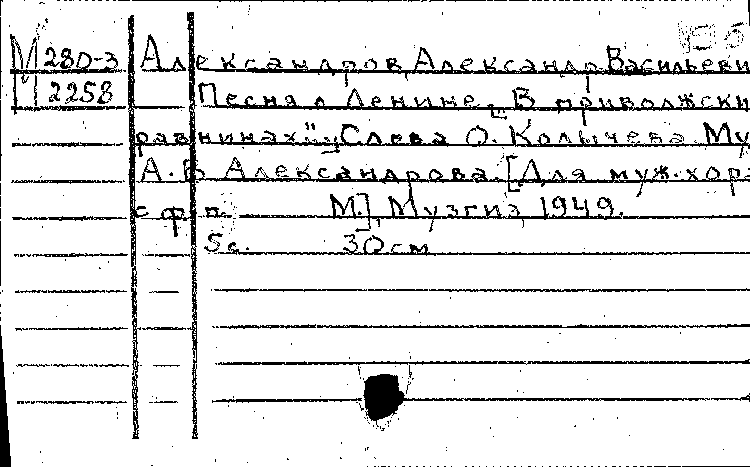 М 280-3 Александров, Александр Васильеви
М 2258 Песня о Ленине. [„В приволжски
равнинах..."] Слова О. Колычева. Му
А.В. Александрова. [Для муж. хора
с ф.-п. М.], Музгиз, 1949.
5 с. 30 см